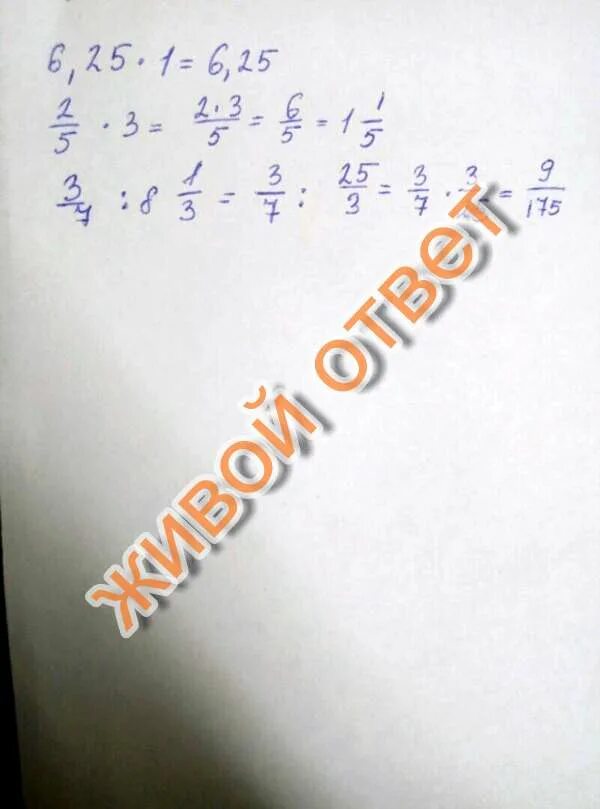 6,25 · 1 = 6,25
2/5 · 3 = 2·3/5 = 6/5 = 1 1/5
3/7 : 8 1/3 = 3/7 : 25/3 = 3/7 · 3/ = 9/175
живой ответ